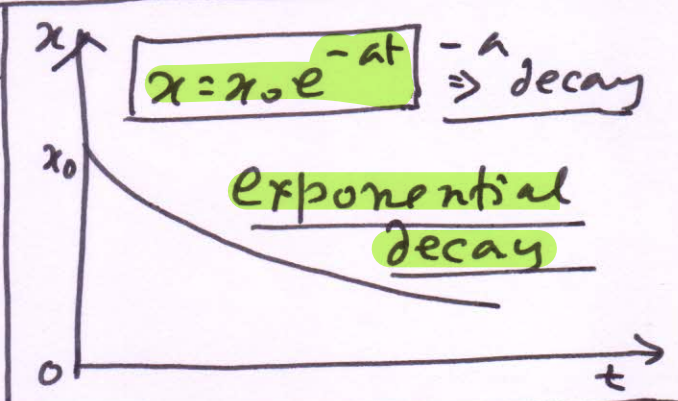 x
x = x₀ e^-at -a ⇒ decay
x₀
exponential
decay
0
t